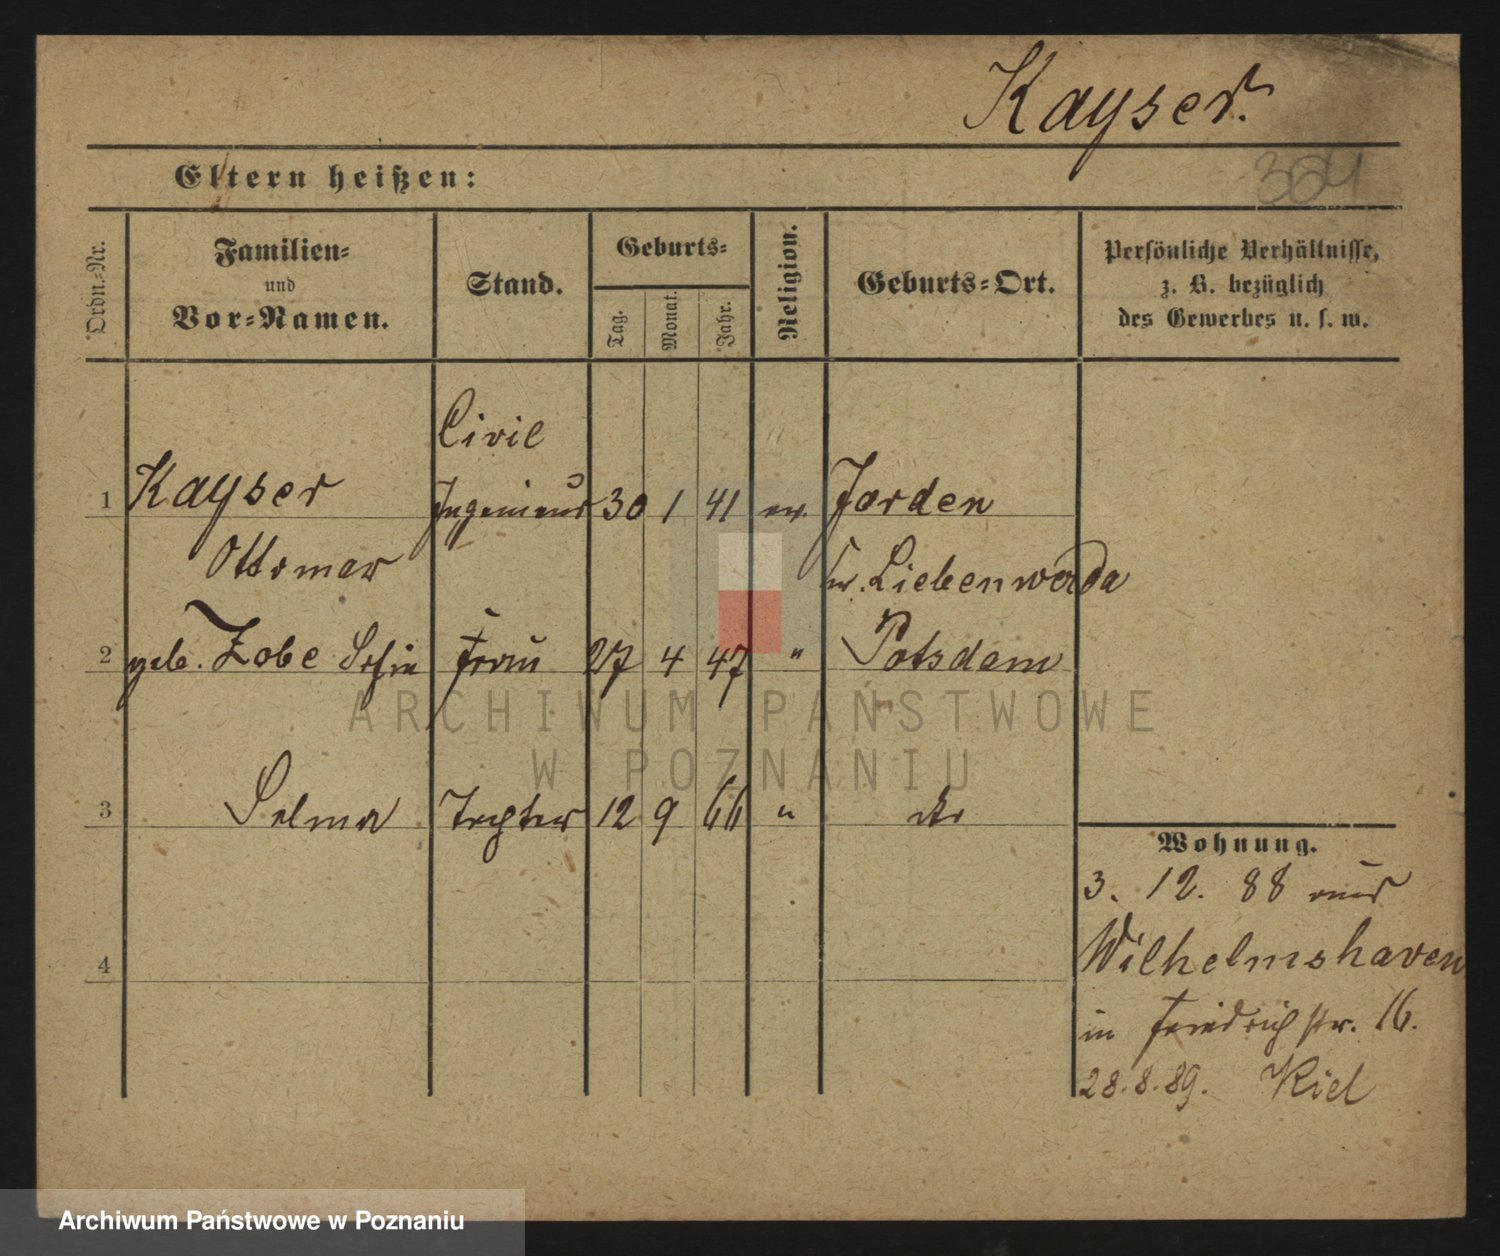 Kayser.
Eltern heißen:
304
Ordn.-Nr.
Familien-
und
Vor-Namen.
Stand.
Geburts-
Tag.
Monat.
Jahr.
Religion.
Geburts-Ort.
Persönliche Verhältnisse,
z. B. bezüglich
des Gewerbes u. s. w.
Civil
1 Kayser Ingenieur 30 1 41 ev. Jorden
Ottomar Kr. Liebenwerda
2 geb. Zobe Frau 27 4 47 " Potsdam
ARCHIWUM PAŃSTWOWE
W POZNANIU
3 Selma Tochter 12 9 66 " do
Wohnung.
3. 12. 88 aus
4 Wilhelmshaven
in Friedrichstr. 16.
28.8.89. Kiel
Archiwum Państwowe w Poznaniu